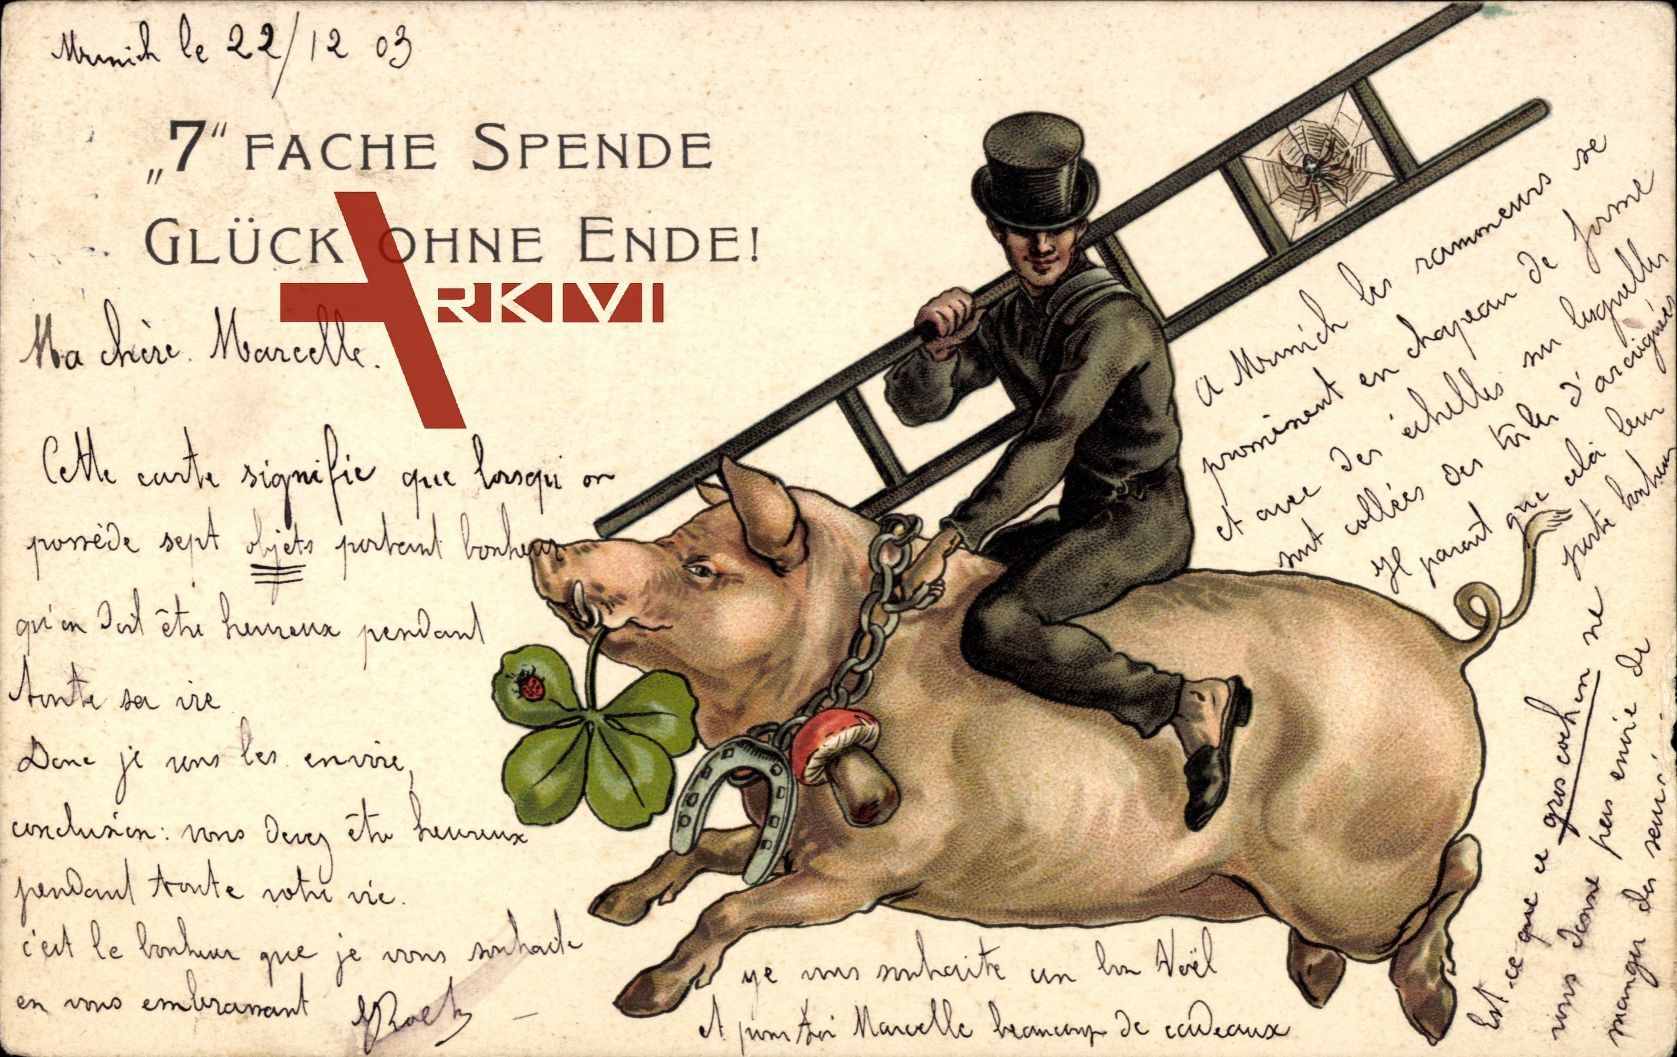 Munich le 22/12 03
„7“ FACHE SPENDE
GLÜCK OHNE ENDE!
ARKIVI
Ma chère Marcelle.
Cette carte signifie que lorsqu'on
possède sept objets portant bonheur
qu'on doit être heureux pendant
toute sa vie
Donc je vous les envoie,
conclusion: vous devez être heureux
pendant toute votre vie.
c'est le bonheur que je vous souhaite
en vous embrassant
A Munich les ramoneurs se
promènent en chapeau de forme
et avec des échelles sur lesquelles
sont collées des toiles d'araignées
Il parait que cela leur
porte bonheur
Est-ce que ce gros cochon ne
vous donne pas envie de
manger des
ye vous souhaite un bon Noël
et pour toi Marcelle beaucoup de cadeaux